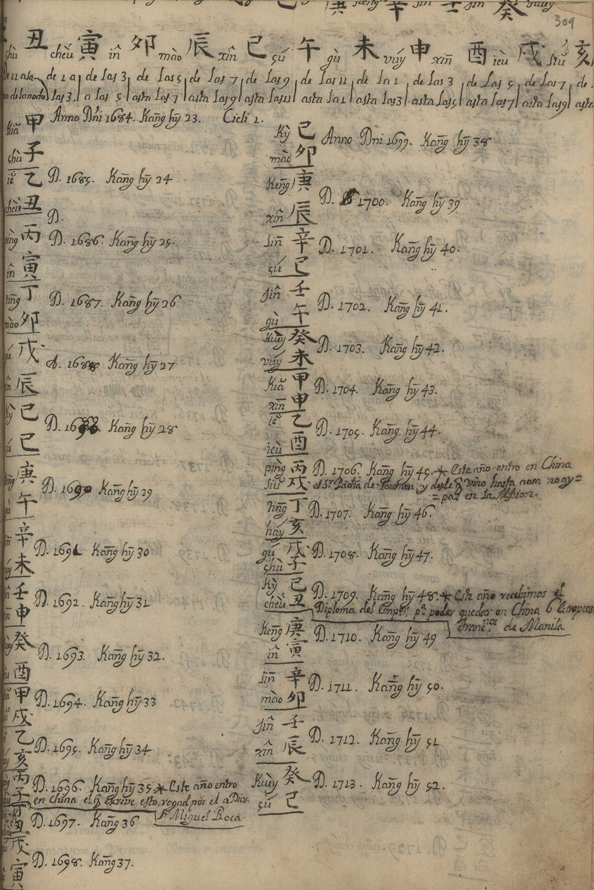 309
丑 寅 卯 辰 巳 午 未 申 酉 戌 亥
chèu în mào xîn çú gù vúy xīn ièu
de 1 a de las 3 de las 5 de las 7 de las 9 de las 11 de la 1 de las 3 de las 5 de las 7 de
las 3. a las 5 asta las 7 asta las 9 asta las 11 asta la 1 asta las 3 asta las 5 asta las 7 asta las 9 asta
甲子 Anno Dni 1684. Kang hy 23. Cicli 1.
乙丑 D. 1685. Kang hy 24
D.
丙寅 D. 1686. Kang hy 25.
丁卯 D. 1687. Kang hy 26
戊辰 A. 1688 Kang hy 27
己巳 D. Kang hy 28
庚午 D. 1690 Kang hy 29
辛未 D. 1691 Kang hy 30
壬申 D. 1692. Kang hy 31
癸酉 D. 1693. Kang hy 32.
甲戌 D. 1694. Kang hy 33
乙亥 D. 1695. Kang hy 34
丙子 D. 1696. Kang hy 35 * Este año entro
en China el q escrive esto, rogad por el a Dios.
Fr Miguel Roca
丑 D. 1697. Kang 36
戊寅 D. 1698. Kang 37.
Kỳ mào 己卯 Anno Dni 1699. Kang hy 38
Keng xîn 庚辰 D. 1700. Kang hy 39
sin çú 辛巳 D. 1701. Kang hy 40.
jin gù 壬午 D. 1702. Kang hy 41.
Kuèy vúy 癸未 D. 1703. Kang hy 42.
Kiă xīn 甲申 D. 1704. Kang hy 43.
iĕ ièu 乙酉 D. 1705. Kang hy 44.
pìng 丙戌 D. 1706. Kang hy 45. * Este año entro en China
el Sr y desde q vino hasta aora no ay
paz en la Mision.
ting háy 丁亥 D. 1707. Kang hy 46.
gú chù 戊子 D. 1708. Kang hy 47.
Kỳ chèu 己丑 D. 1709. Kang hy 48. * Este año recibimos el
Diploma del Empor. pa. poder quedar en China 6
de Manila
Keng în 庚寅 D. 1710. Kang hy 49
sin mào 辛卯 D. 1711. Kang hy 50.
jin xîn 壬辰 D. 1712. Kang hy 51
Kuèy çú 癸巳 D. 1713. Kang hy 52.